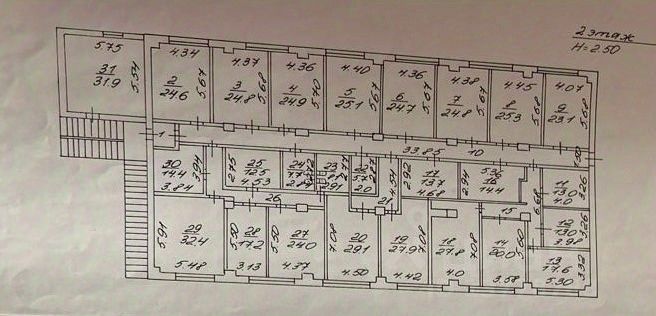 2 этаж
H=2.50
5.75
31
31.9
5.54
4.34
2
24.6
5.67
4.37
3
24.8
5.68
4.36
4
24.9
5.70
4.40
5
25.1
5.67
4.36
6
24.7
5.67
4.38
7
24.8
5.67
4.45
8
25.3
5.68
4.07
9
23.1
5.68
1
33.85
10
1.50
30
14.4
3.94
3.84
2.75
25
12.5
4.53
24
23
2.91
2.0
4.54
21
2.92
17
13.7
4.68
2.94
5.36
16
14.4
11
13.0
4.0
3.26
6.68
15
12
13.0
3.98
3.26
26
5.91
29
32.4
5.48
5.50
28
17.2
3.13
5.50
27
24.0
4.37
7.08
20
29.1
4.50
19
27.9
7.08
4.42
18
27.8
4.0
7.08
14
20.0
5.60
3.58
13
17.6
3.32
5.30